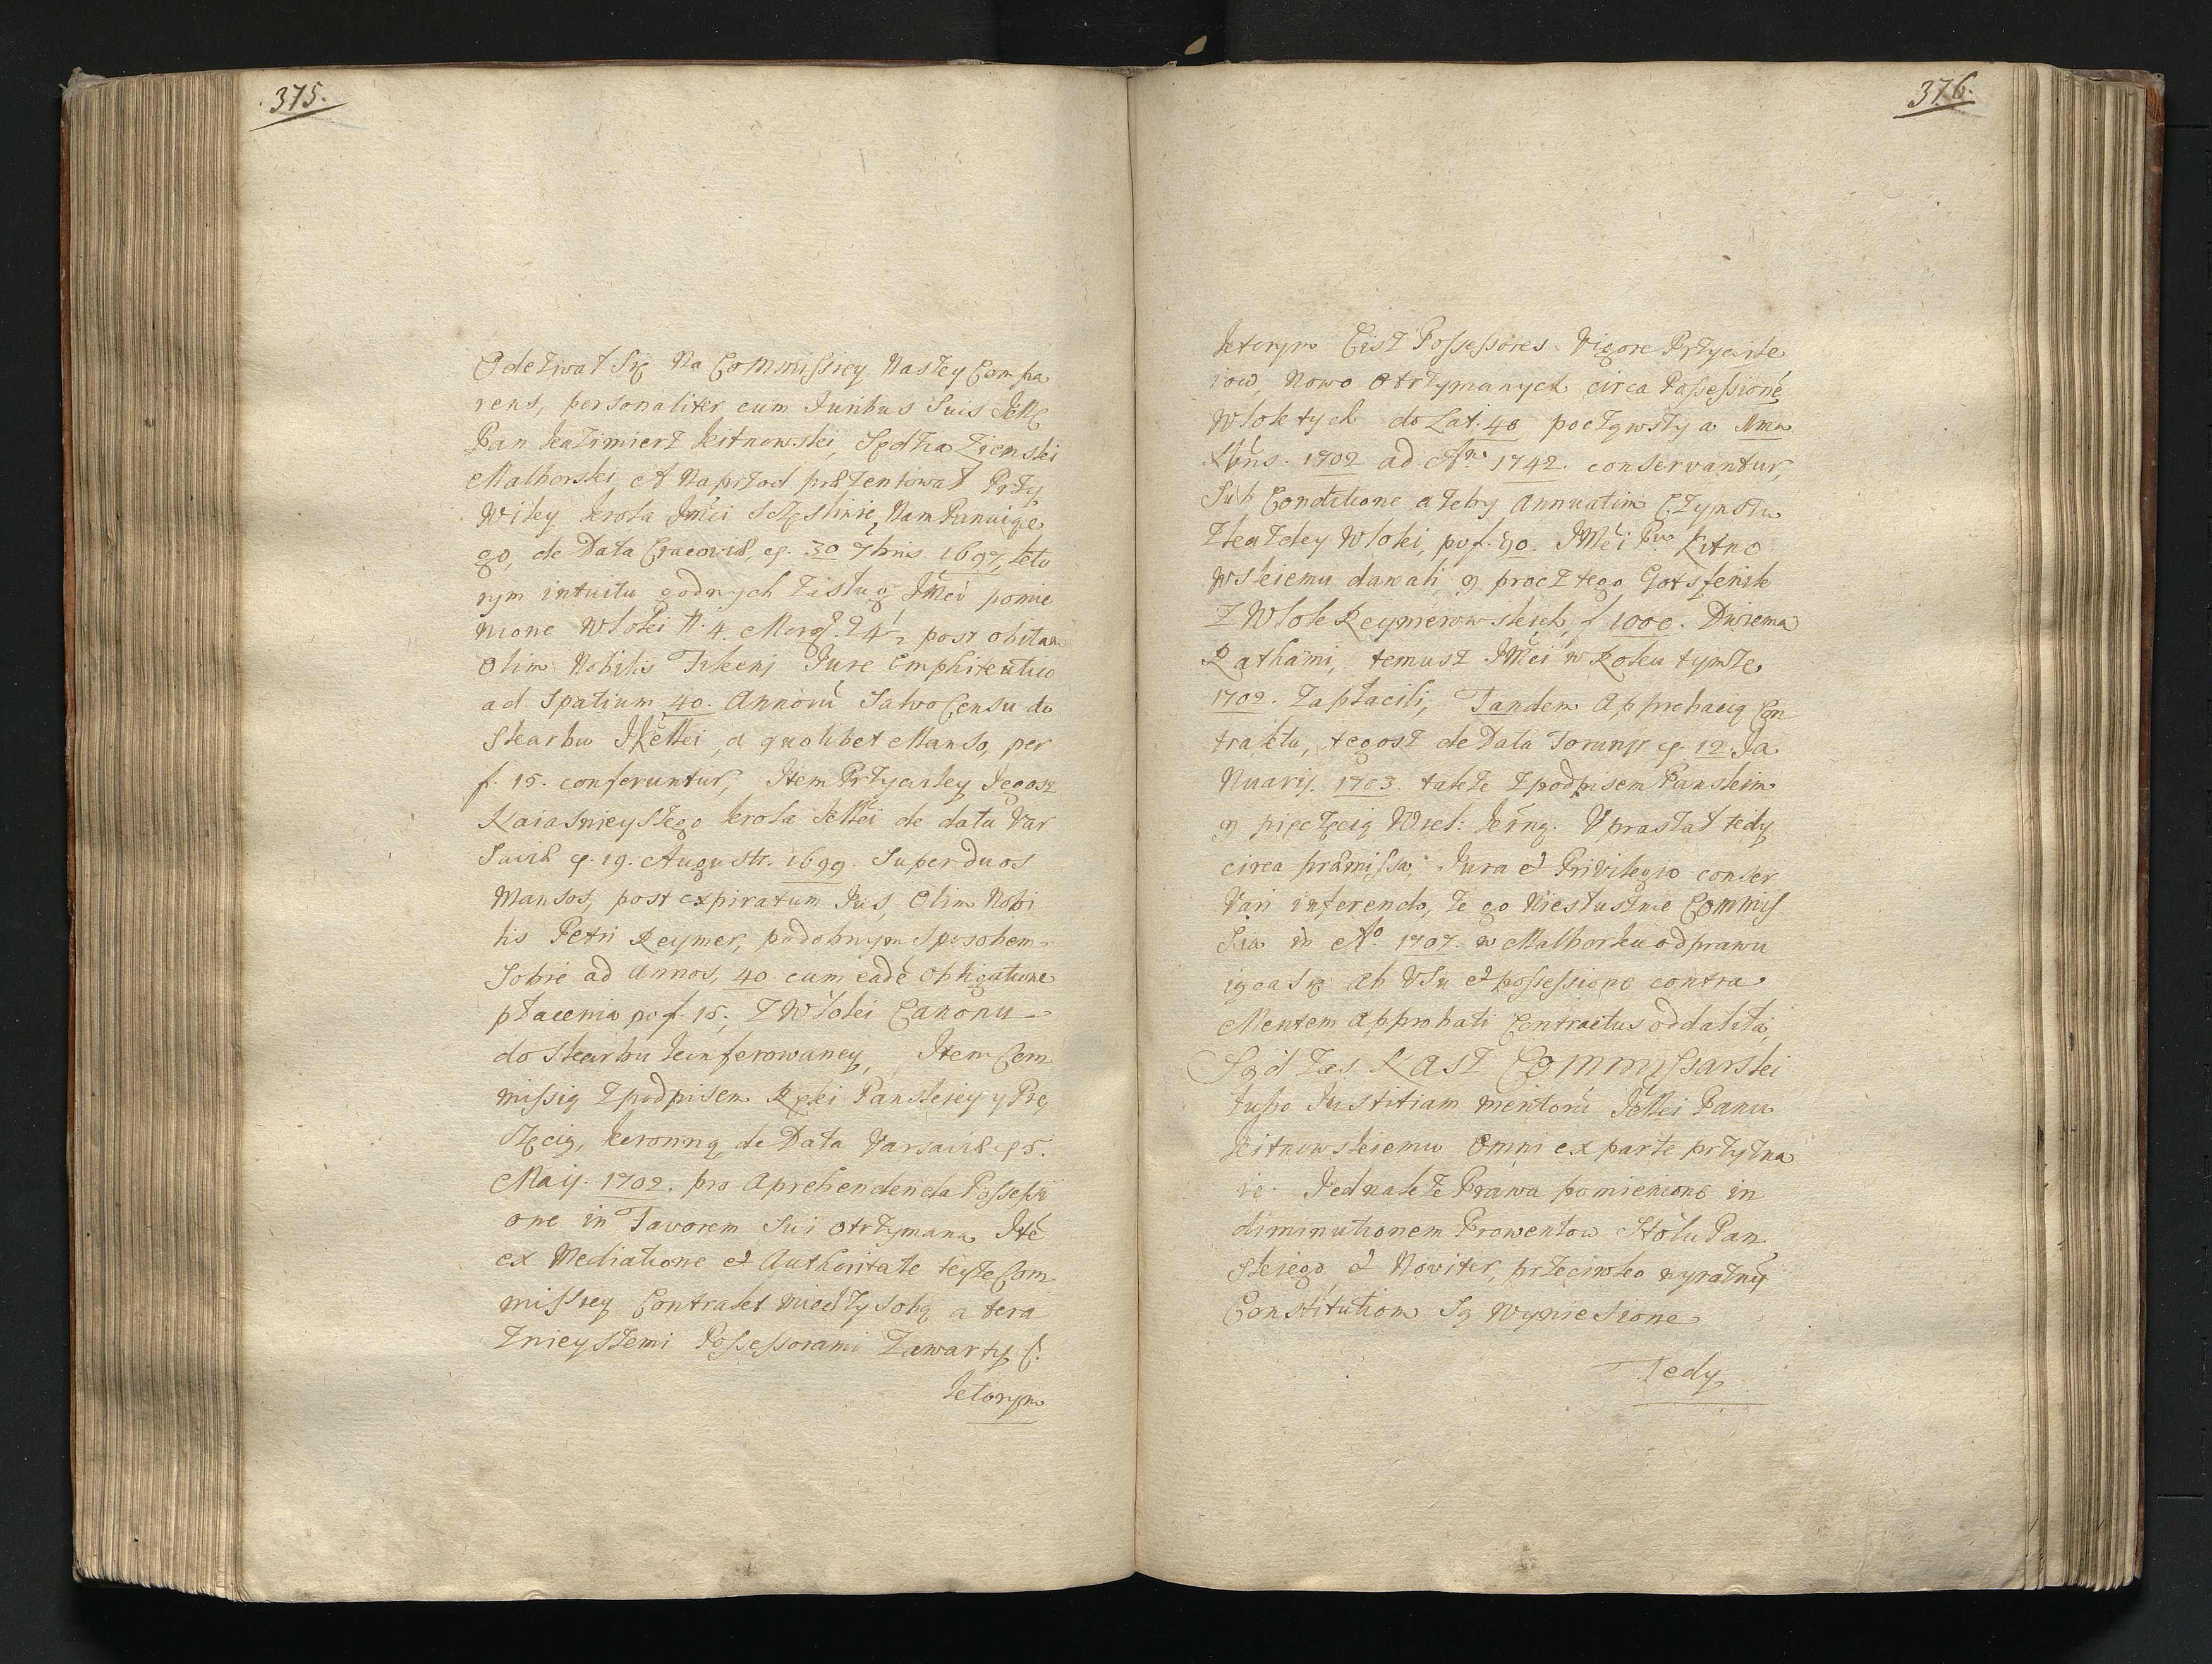 375.
Odezwał się Na Commissiey Naszey Compa
rens, personaliter cum Juribus Suis JeMć
Pan Kazimierz Kitnowski, Sędzia Ziemski
Malborski, et Naprzod prezentował Przy
Wiley Krola JMći Szczęśliwie Nam Panuiące
go, de Data Cracoviæ, d. 30 7bris 1697, kto
rym intuitu godnych zasług JMći pomie
nione Włoki N. 4. Morg. 24½ post obitum
Olim Nobilis Jure Emphiteutico
ad Spatium 40. Annorū Salvo Censu do
Skarbu JKMći, a quolibet Manso, per
f. 15. conferuntur, Item Przywiley Tegosz
Naiasnieyszego Krola JeMći de data Var
saviæ d. 19. Augusti. 1699. Super duos
Mansos, post expiratum Jus, Olim Nobi
lis Petri Reymer, podobnym Sposobem
Sobie ad Annos, 40 cum eadē obligatione
płacenia po f. 15, z Włoki Canonu
do Skarbu konferowaney, Item Com
missią z podpisem Ręki Panskiey y Pie
częcią, koronną, de Data Varsaviæ d 5.
Maij. 1702. pro Aprehendenda Possessi
one in Favorem Sui otrzymaną Itē
ex Mediatione et Authoritate teyze Com
missiey Contrakt między sobą a tera
znieyszemi Possessorami Zawarty
Ktorym
376.
Ktorym Cisz Possessores Vigore Przywile
iow, Nowo Otrzymanych circa Possessionē
Włok tych do Lat 40 począwszy a
1702 ad Aⁿ. 1742. conservantur,
Sub Conditione azeby Annuatim Czynszu
z kazdey Włoki, po f. 90. JMći Pu Kitno
wskiemu dawali, y procz tego
z Włok Reymerowskich, f 1000. Dwiema
Rathami, temusz JMći w Roku tymze
1702. zapłacili, Tandem Approbacią Con
traktu, tegosz de Data Torunij d. 12. Ja
Nuarij. 1703. takze z podpisem Panskim
y pieczęcią Wiel: koroną. Upraszał tedy
circa præmissa, Jura et Privilegia conser
vari inferendo, ze go Niesłusznie Commis
sia in A° 1707. w Malborku odprawu
iąca się ab Usu et possessione contra
Mentem Approbati Contractus oddaliła,
Sąd zas Nasz Commissarski
lubo Justitiam meritorū JeMći Panu
Kitnowskiemu Omni ex parte przyzna
ie. Jednak ze Prawa pomienione in
diminutionem Prowentow Stołu Pan
skiego, et Noviter, przeciwko wyrazney
Constitutiom są wyniesione
Tedy